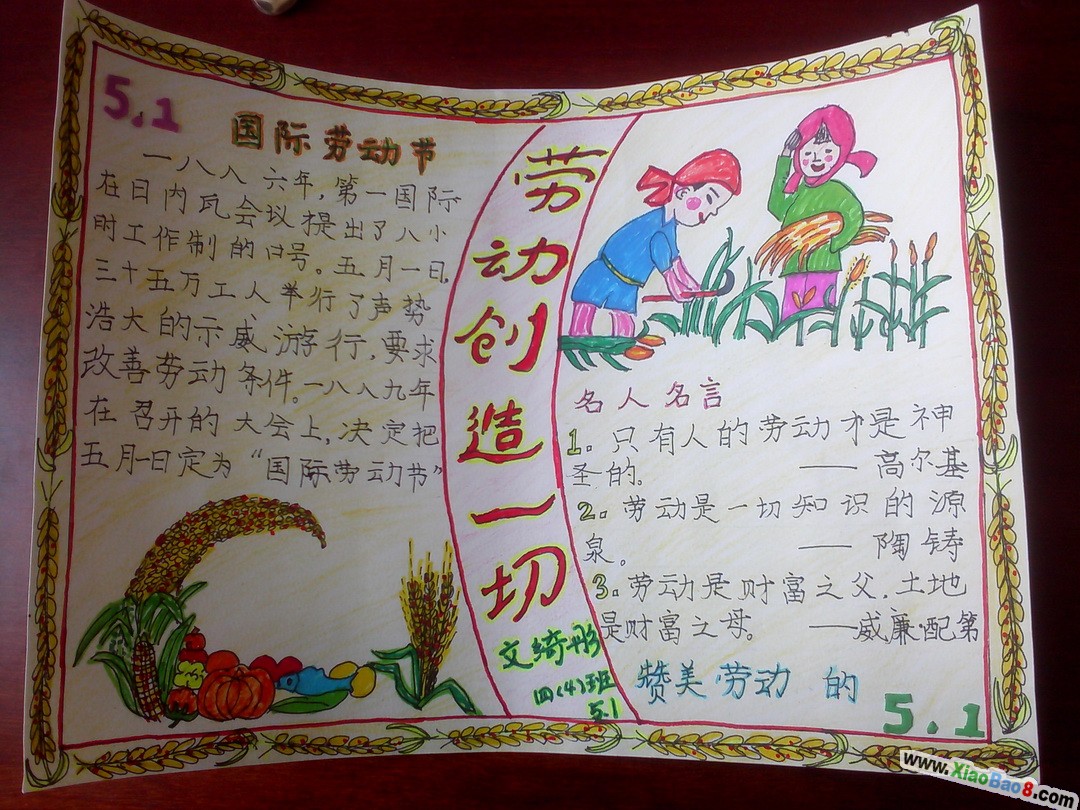 5.1
国际劳动节
一八八六年,第一国际
在日内瓦会议提出了八小
时工作制的口号。五月一日,
三十五万工人举行了声势
浩大的示威游行,要求
改善劳动条件。一八八九年
在召开的大会上,决定把
五月一日定为“国际劳动节”
劳动创造一切
文绮彤
四(4)班
5.1
名人名言
1。只有人的劳动才是神
圣的。——高尔基
2。劳动是一切知识的源
泉。——陶铸
3。劳动是财富之父,土地
是财富之母。——威廉·配第
赞美劳动的
5.1
www.XiaoBao8.com